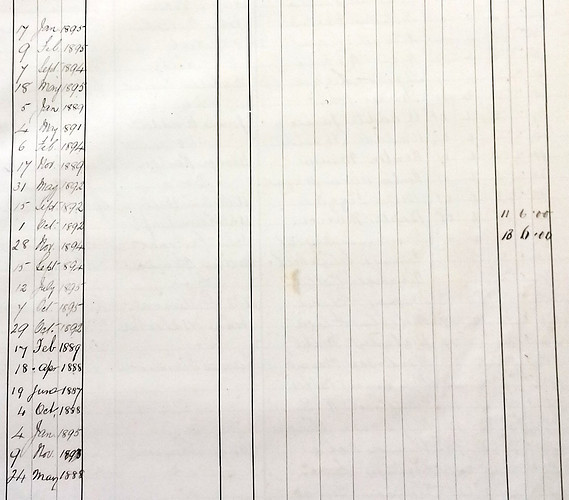 17 Jan 1895
9 Feb 1895
7 Sept 1894
18 May 1895
5 Jan 1889
4 May 1891
6 Feb. 1894
17 Nov. 1889
31 May 1892
15 Sept 1892
11 6.00
1 Oct. 1892
13 6.00
28 Nov. 1894
15 Sept 1894
12 July 1895
7 Oct 1895
29 Oct. 1892
17 Feb 1889
18 Apr 1888
19 June 1887
4 Oct. 1888
4 Jan 1895
9 Nov. 1893
24 May 1888